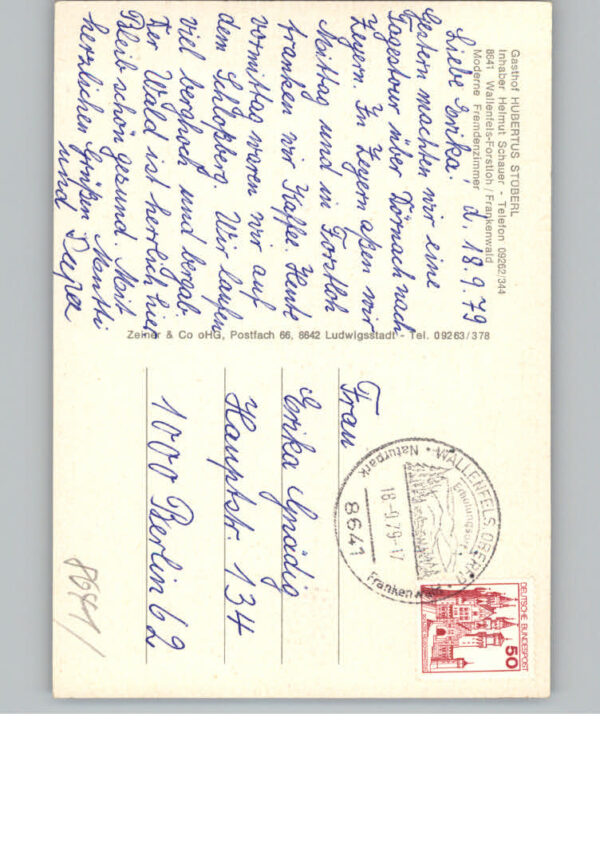 Gasthof HUBERTUS STÜBERL
Inhaber Helmut Schauer - Telefon 09262/344
8641 Wallenfels-Forstloh / Frankenwald
Moderne Fremdenzimmer
d. 18.9.79
Liebe Erika.
Gestern machten wir eine
Tagestour über Dörnach nach
Zeyern. In Zeyern aßen wir
Mittag und in Forstloh
tranken wir Kaffe. Heute
vormittag waren wir auf
dem Schloßberg. Wir laufen
viel berghoch und bergab.
Der Wald ist herrlich hier
Bleib schön gesund. Mit
herzlichen Grüßen Mutti
und Papa
Zeiner & Co oHG, Postfach 66, 8642 Ludwigsstadt - Tel. 09263/378
DEUTSCHE BUNDESPOST
50
WALLENFELS, OBERFR
Erholungsort
Naturpark
18-9.79-17
8641
Frankenwald
Frau
Erika Gnädig
Hauptstr. 134
1000 Berlin 62
8641/